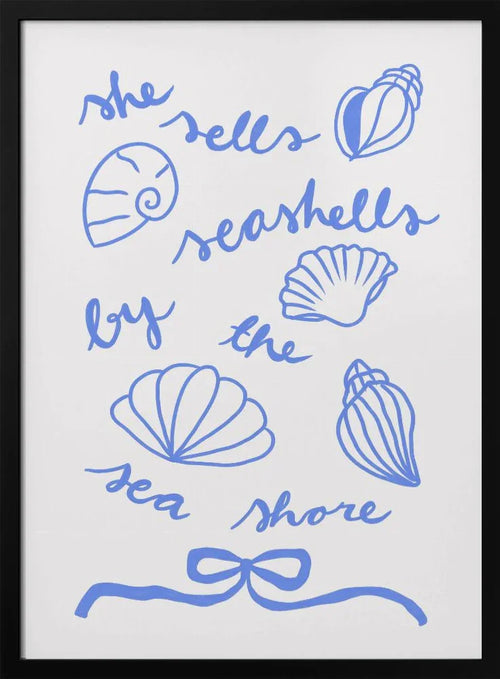 she
sells
seashells
by the
sea shore